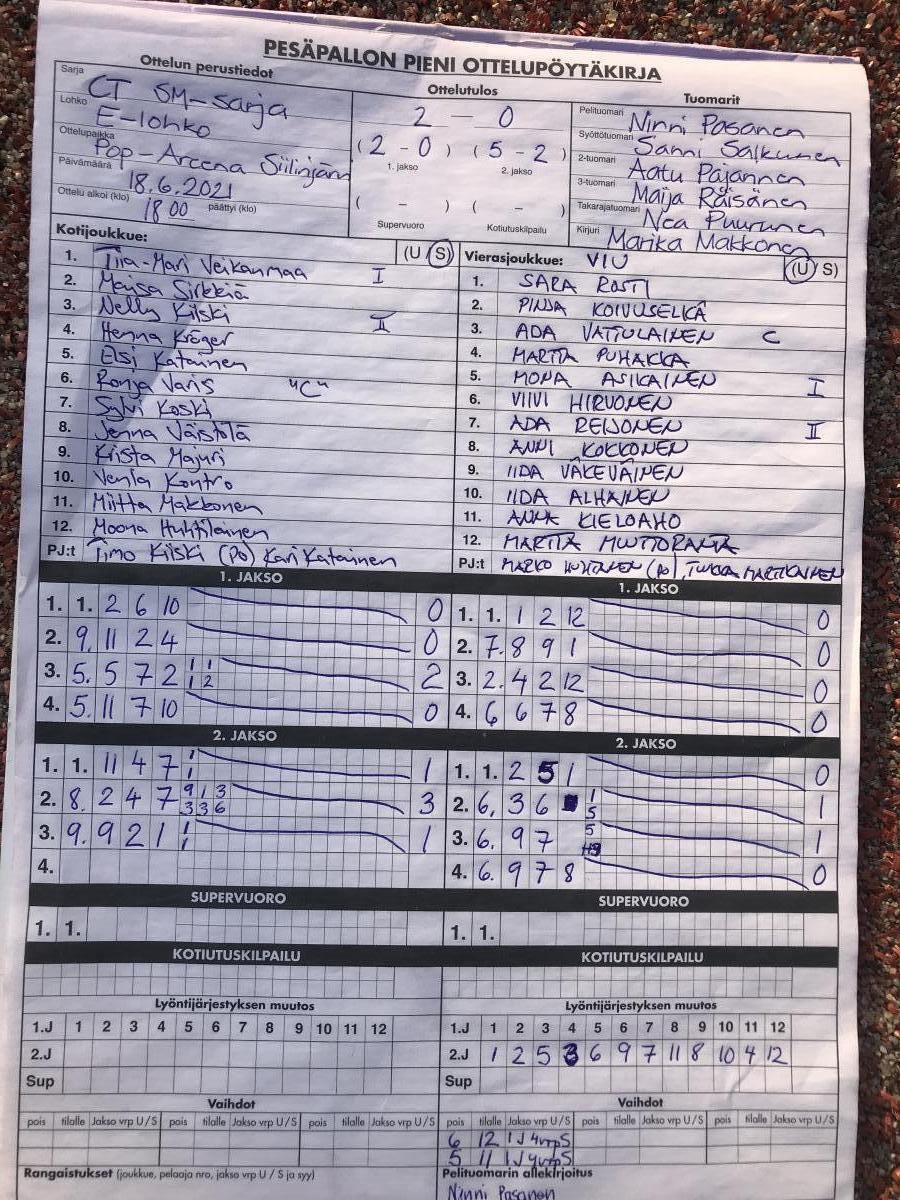 PESÄPALLON PIENI OTTELUPÖYTÄKIRJA
Ottelun perustiedot
Sarja CT SM-sarja
Lohko E-lohko
Ottelupaikka Pop-Areena Siilinjärvi
Päivämäärä 18.6.2021
Ottelu alkoi (klo) 18 00 päättyi (klo)
Ottelutulos
2 - 0
(2 - 0) (5 - 2)
1. jakso 2. jakso
( - ) ( - )
Supervuoro Kotiutuskilpailu
Tuomarit
Pelituomari Ninni Pasanen
Syöttötuomari Sanni Salkunen
2-tuomari Aatu Pajannen
3-tuomari Maija Räisänen
Takarajatuomari Nea Puurunen
Kirjuri Marika Makkonen
Kotijoukkue: (U S)
1. Tiia-Mari Veikanmaa I
2. Maisa Sirkkiä
3. Nelly Kilski II
4. Henna Kröger
5. Elsi Katainen
6. Ronja Varis "C"
7. Sylvi Koski
8. Jenna Väistölä
9. Krista Majuri
10. Venla Kontro
11. Miitta Makkonen
12. Moona Huhtilainen
PJ:t Timo Kilski (Po) Kari Katainen
Vierasjoukkue: VIU (U S)
1. SARA ROSTI
2. PINJA KOIVUSELKÄ
3. ADA VATTULAINEN C
4. MARTTA PUHAKKA
5. MONA ASIKAINEN I
6. VIIVI HIRVONEN
7. ADA REIJONEN II
8. ANNI KOKKONEN
9. IIDA VÄKEVÄINEN
10. IIDA ALHAINEN
11. ANNA KIELOAHO
12. MARTTA
PJ:t MARKO (Po), MARTIKAINEN
1. JAKSO
1. 1. 2 6 10 0
2. 9. 11 2 4 0
3. 5. 5 7 2 1 1 1 2 2
4. 5. 11 7 10 0
2. JAKSO
1. 1. 11 4 7 1 1 1
2. 8. 2 4 7 9 1 3 3 3 6 3
3. 9. 9 2 1 1 1 1
4.
SUPERVUORO
1. 1.
KOTIUTUSKILPAILU
Lyöntijärjestyksen muutos
1.J 1 2 3 4 5 6 7 8 9 10 11 12
2.J
Sup
Vaihdot
pois tilalle Jakso vrp U/S pois tilalle Jakso vrp U/S pois tilalle Jakso vrp U/S
Rangaistukset (joukkue, pelaaja nro, jakso vrp U / S ja syy)
1. JAKSO
1. 1. 1 2 12 0
2. 7. 8 9 1 0
3. 2. 4 2 12 0
4. 6 6 7 8 0
2. JAKSO
1. 1. 2 5 1 0
2. 6. 3 6 1 5 1
3. 6. 9 7 5 1
4. 6. 9 7 8 0
SUPERVUORO
1. 1.
KOTIUTUSKILPAILU
Lyöntijärjestyksen muutos
1.J 1 2 3 4 5 6 7 8 9 10 11 12
2.J 1 2 5 3 6 9 7 11 8 10 4 12
Sup
Vaihdot
pois tilalle Jakso vrp U/S pois tilalle Jakso vrp U/S pois tilalle Jakso vrp U/S
6 12 1J 4vrpS
5 11 1J 4vrpS
Pelituomarin allekirjoitus
Ninni Pasanen